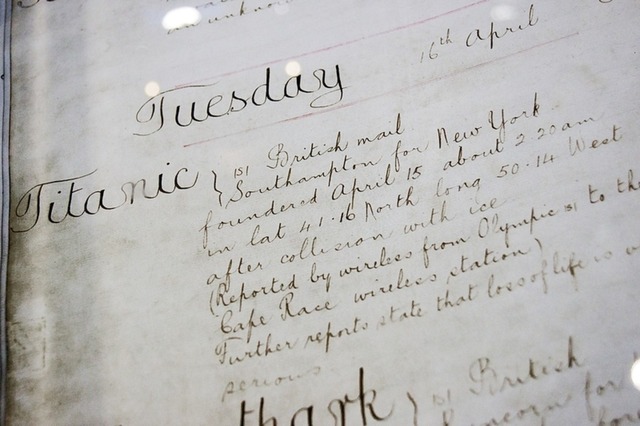 an unknown
Tuesday 16th April
Titanic } ss British mail
(Southampton for New York
foundered April 15 about 2.20am
in lat 41.16 North long 50.14 West
after collision with ice
(Reported by wireless from Olympic ss to the
Cape Race wireless station)
Further reports state that loss of life is
serious
thark } ss British
for